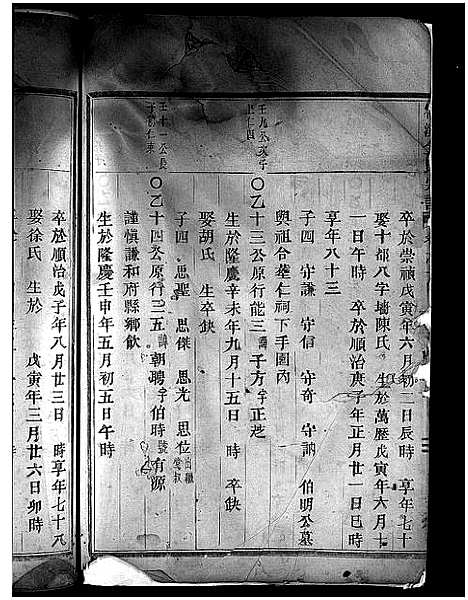 卒於崇禎戊寅年六月初二日辰時 享年七十
娶十都八字墻陳氏 生於萬歷戊寅年六月十
一日午時 卒於順治庚子年正月廿一日巳時
享年八十三
子四 守謙 守信 守奇 守訥 伯明公墓
與祖合葬仁祠下手園內
壬九公次子
○乙十三公原行能三諱子方字正芝
生於隆慶辛未年九月十五日 時 卒缺
娶胡氏 生卒缺
子四 思聖 思傑 思光 思位出繼
壬十一公長
○乙十四公原行二五諱朝聘字伯時號有源
謹慎謙和府縣鄉飲
生於隆慶壬申年五月初五日午時
卒於順治戊子年八月廿三日 時享年七十八
娶徐氏 生於 戊寅年三月廿六日卯時